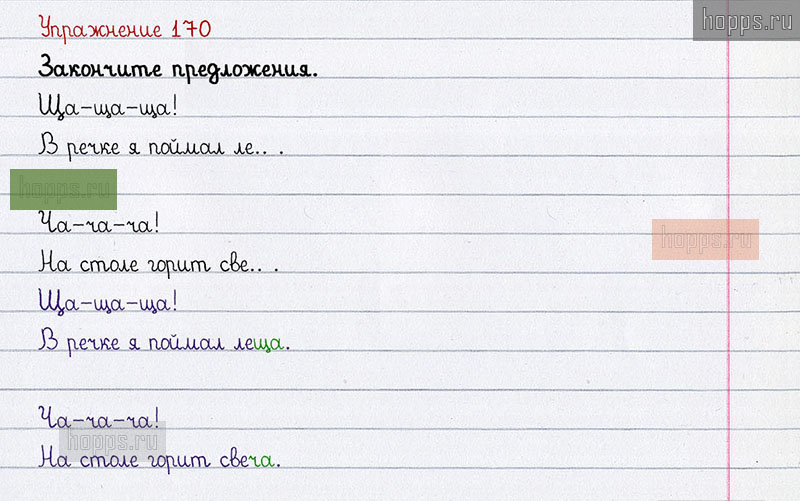 hopps.ru
Упражнение 170
Закончите предложения.
Ща-ща-ща!
В речке я поймал ле.. .
hopps.ru
Ча-ча-ча!
hopps.ru
На столе горит све.. .
Ща-ща-ща!
В речке я поймал леща.
Ча-ча-ча!
hopps.ru
На столе горит свеча.